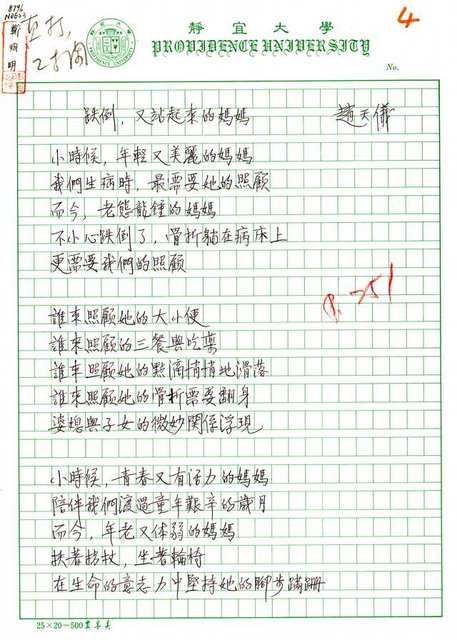 8396
鄭烱明
靜宜大學
PROVIDENCE UNIVERSITY
4
No.
跌倒，又站起來的媽媽
趙天儀
小時候，年輕又美麗的媽媽
我們生病時，最需要她的照顧
而今，老態龍鍾的媽媽
不小心跌倒了，骨折躺在病床上
更需要我們的照顧
P.251
誰來照顧她的大小便
誰來照顧的三餐與吃藥
誰來照顧她的點滴悄悄地滑落
誰來照顧她的骨折需要翻身
婆媳與子女的微妙關係浮現
小時候，青春又有活力的媽媽
陪伴我們渡過童年艱辛的歲月
而今，年老又体弱的媽媽
扶著拐杖，坐著輪椅
在生命的意志力中堅持她的腳步蹣跚
25×20=500